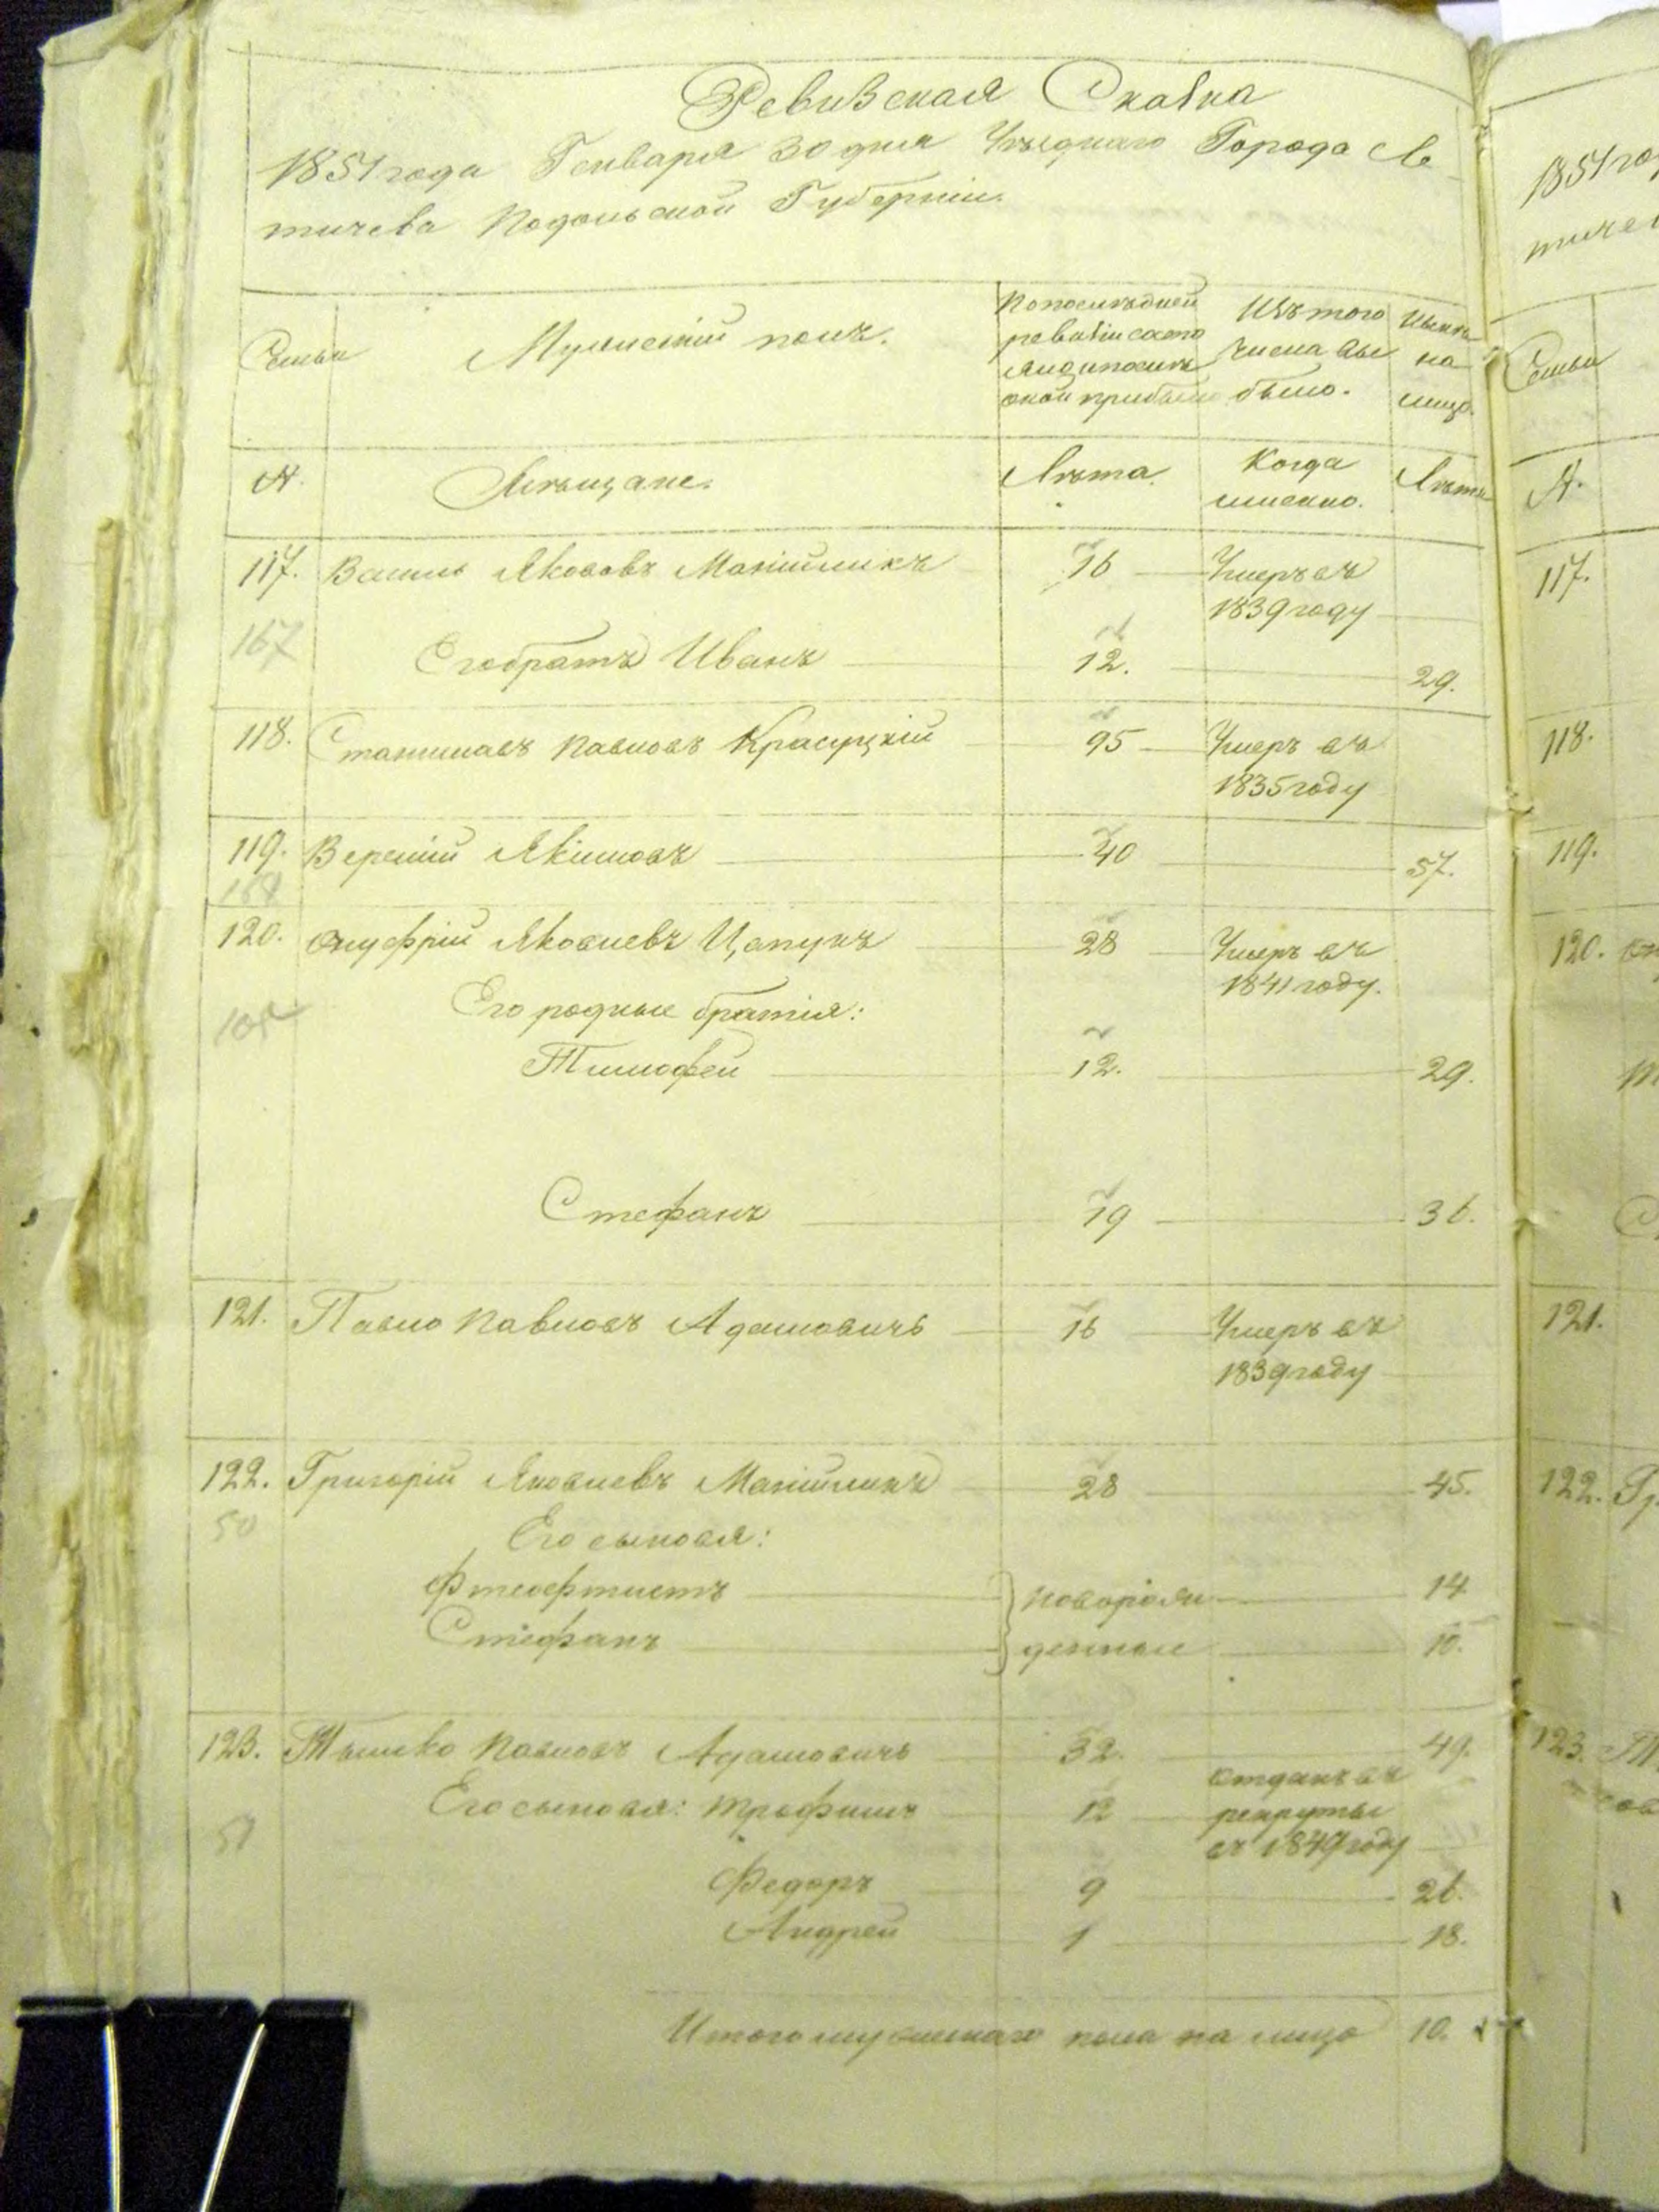 Ревизская Сказка
1851 года Генваря 30 дня Уѣзднаго Города Ле
тичева Подольской Губерніи.
Семьи
Мужескій полъ.
По послѣдней
ревизіи состо
яло и послѣ
оной прибыло
Изъ того
числа вы
было.
Нынѣ
на
лицо.
№.
Мѣщане.
Лѣта.
Когда
именно.
Лѣта
117. Василь Якововъ 16 Умеръ въ
1839 году
167
Его братъ Иванъ 12. 29.
118. Станиславъ Павловъ Красуцкій 95 Умеръ въ
1835 году
119. Веремій Якимовъ 40 57.
168
120. Онуфрій Яковлевъ Цапукъ 28 Умеръ въ
1841 году.
Его родные братія:
Тимофей 12. 29.
Стефанъ 19 36.
121. Павло Павловъ Адамовичъ 16 Умеръ въ
1839 году
122. Григорій Яковлевъ 28 45.
50
Его сыновья:
Фтеофтистъ новорож 14
Стефанъ денные 10.
123. Тымко Павловъ Адамовичъ 32. 49.
Его сыновья: Трофимъ 12 отданъ въ
рекруты
въ 1849 году
51
Федоръ 9 26.
Андрей 1 18.
Итого мужескаго пола на лицо 10.
1851 го
тиче
Семьи
№.
117.
118.
119.
120.
121.
122. Гр
123.